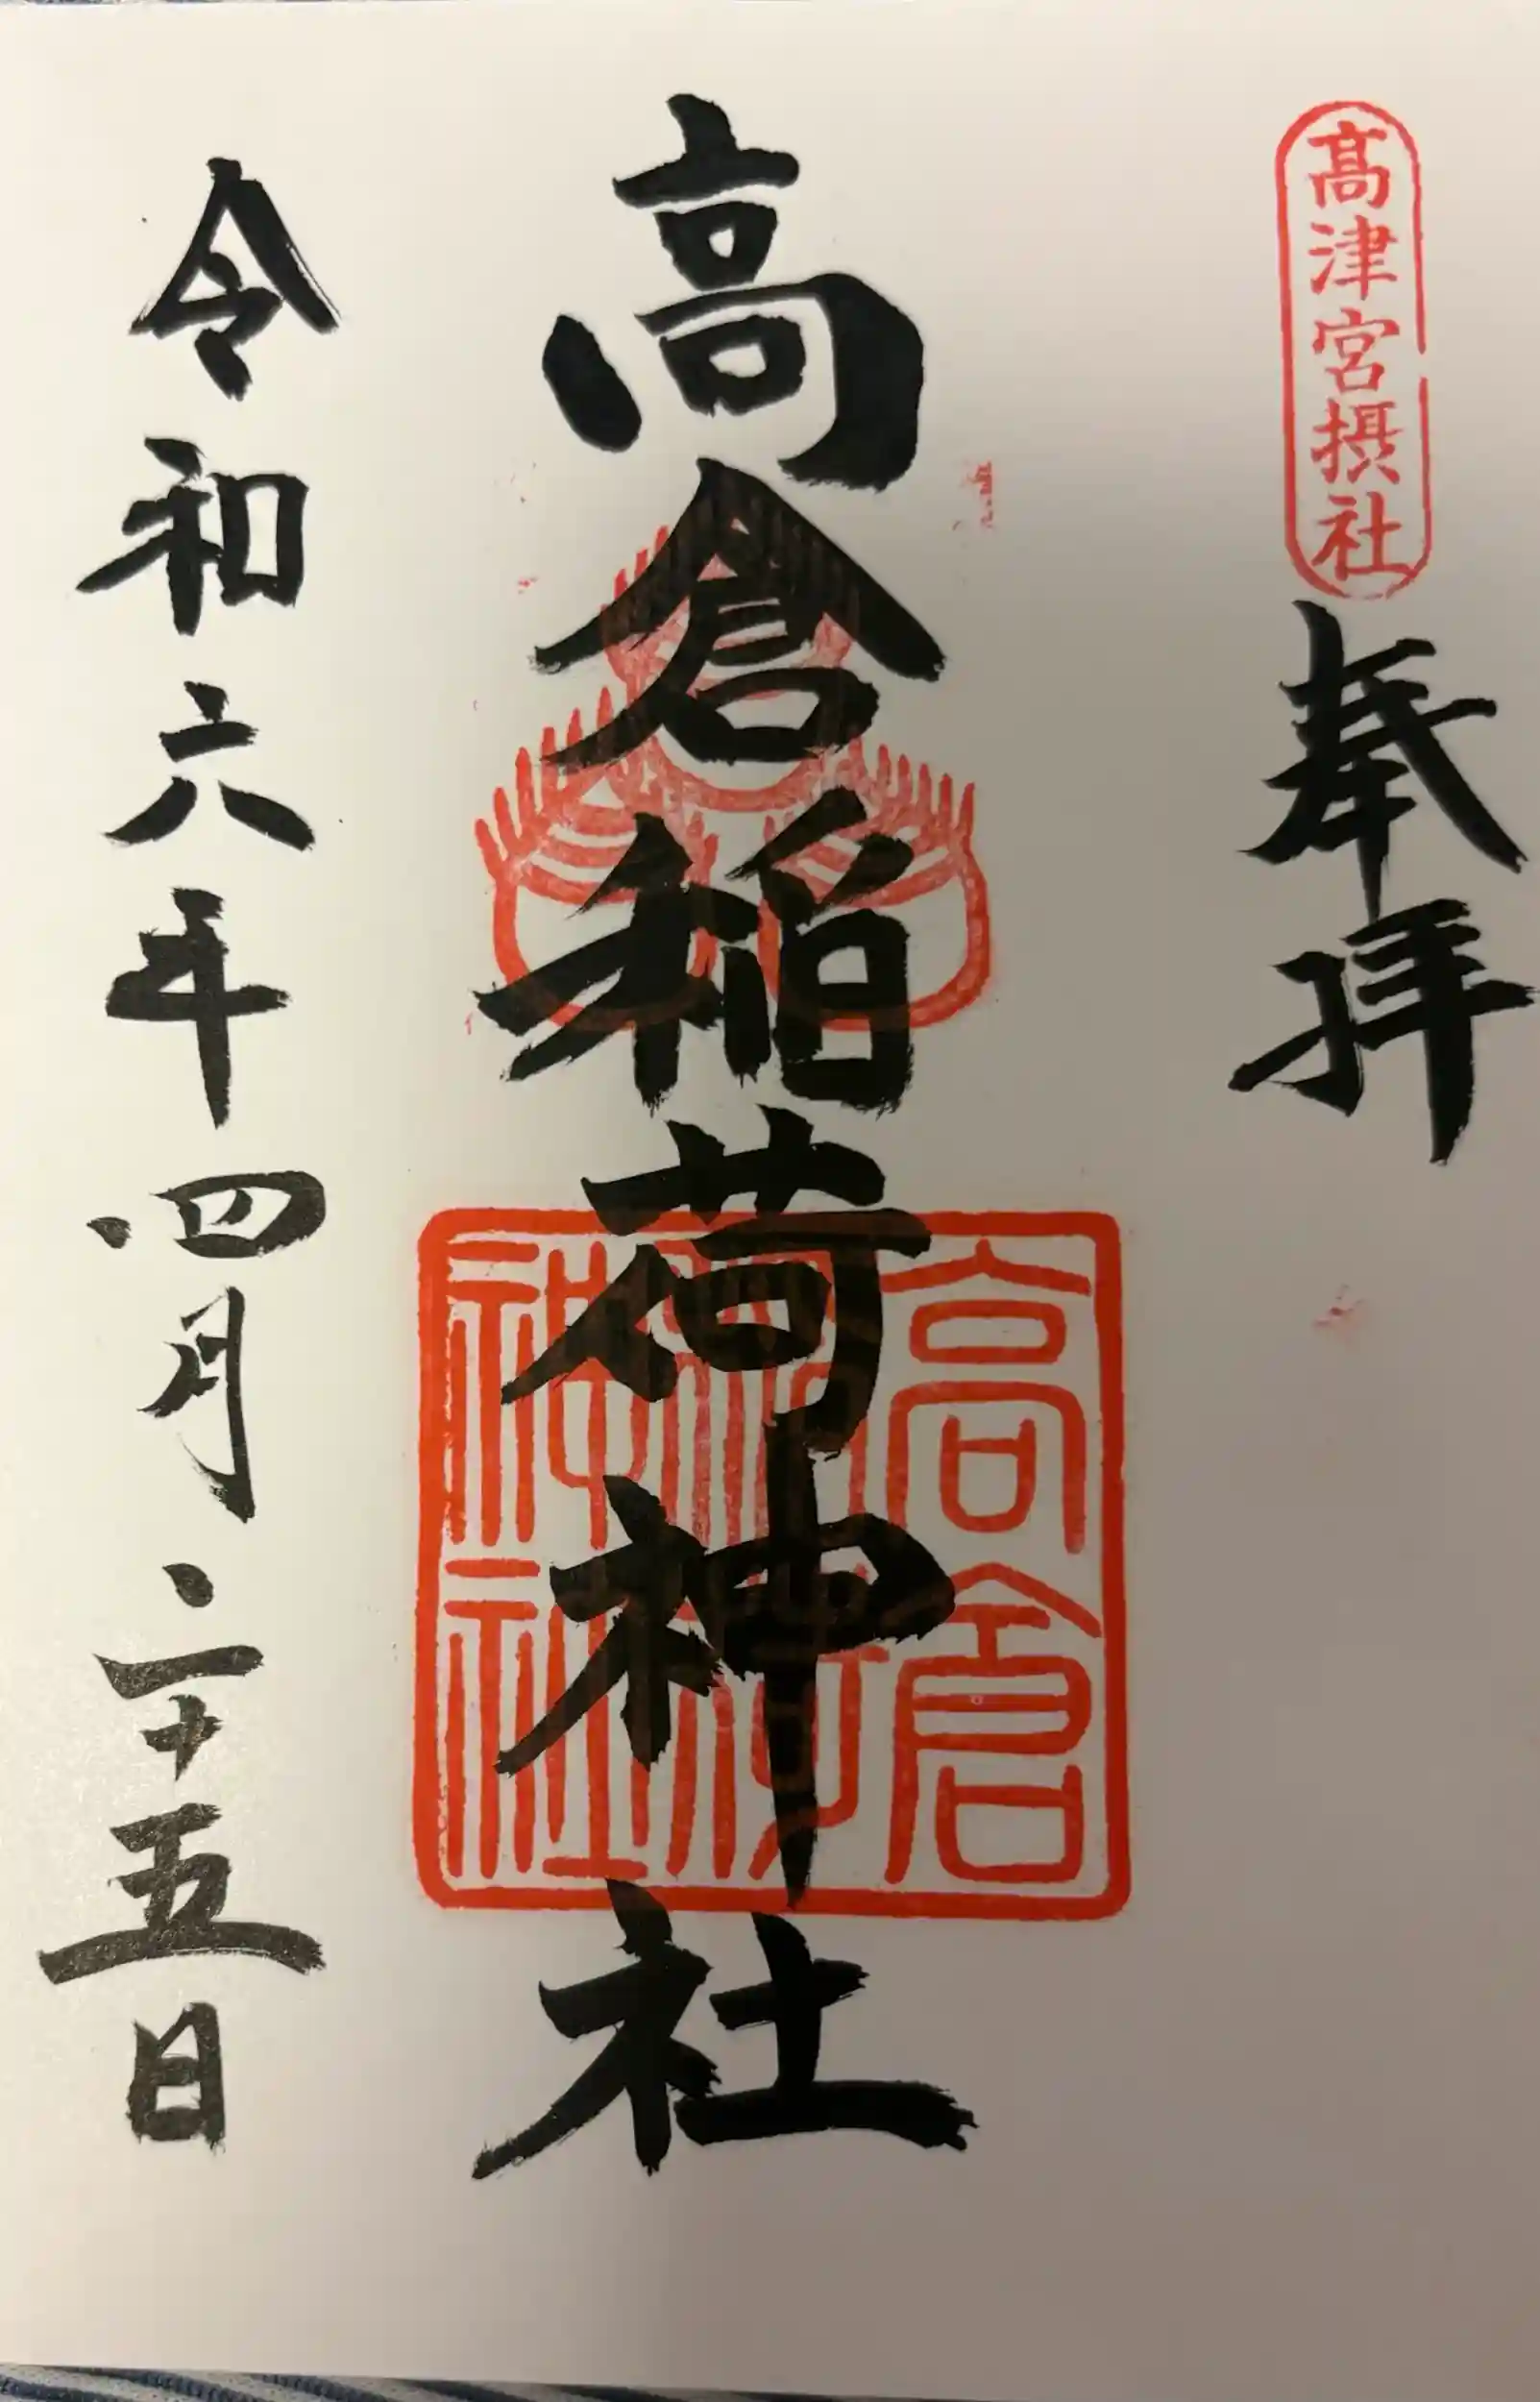 髙津宮摂社
奉拝
高倉稲荷神社
高倉稲荷神社
令和六年四月二十五日